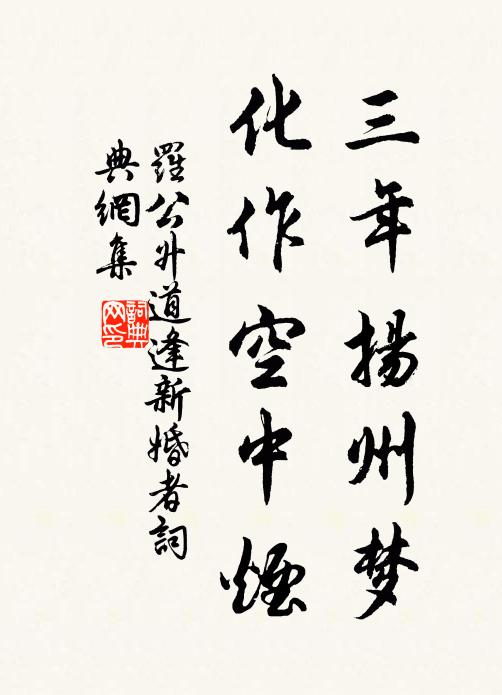 三年揚州梦
化作空中煙
羅公升道逢新婚者詞
典網集
詞典
网印